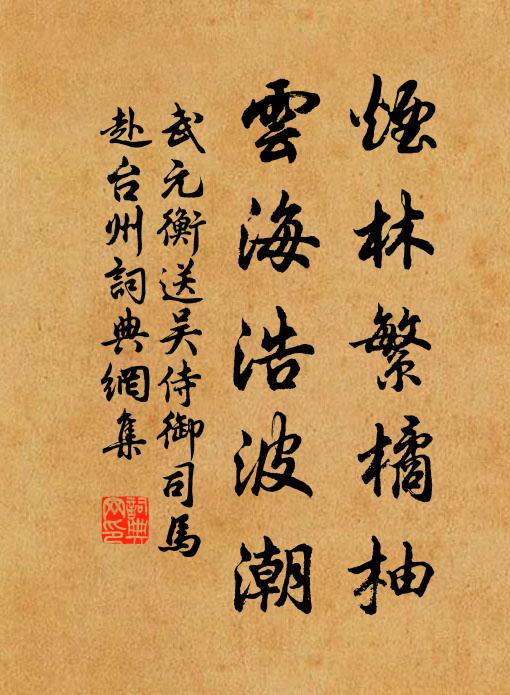 煙林繁橘柚
雲海浩波潮
武元衡送吴侍御司馬
赴台州詞典網集
詞典
网印